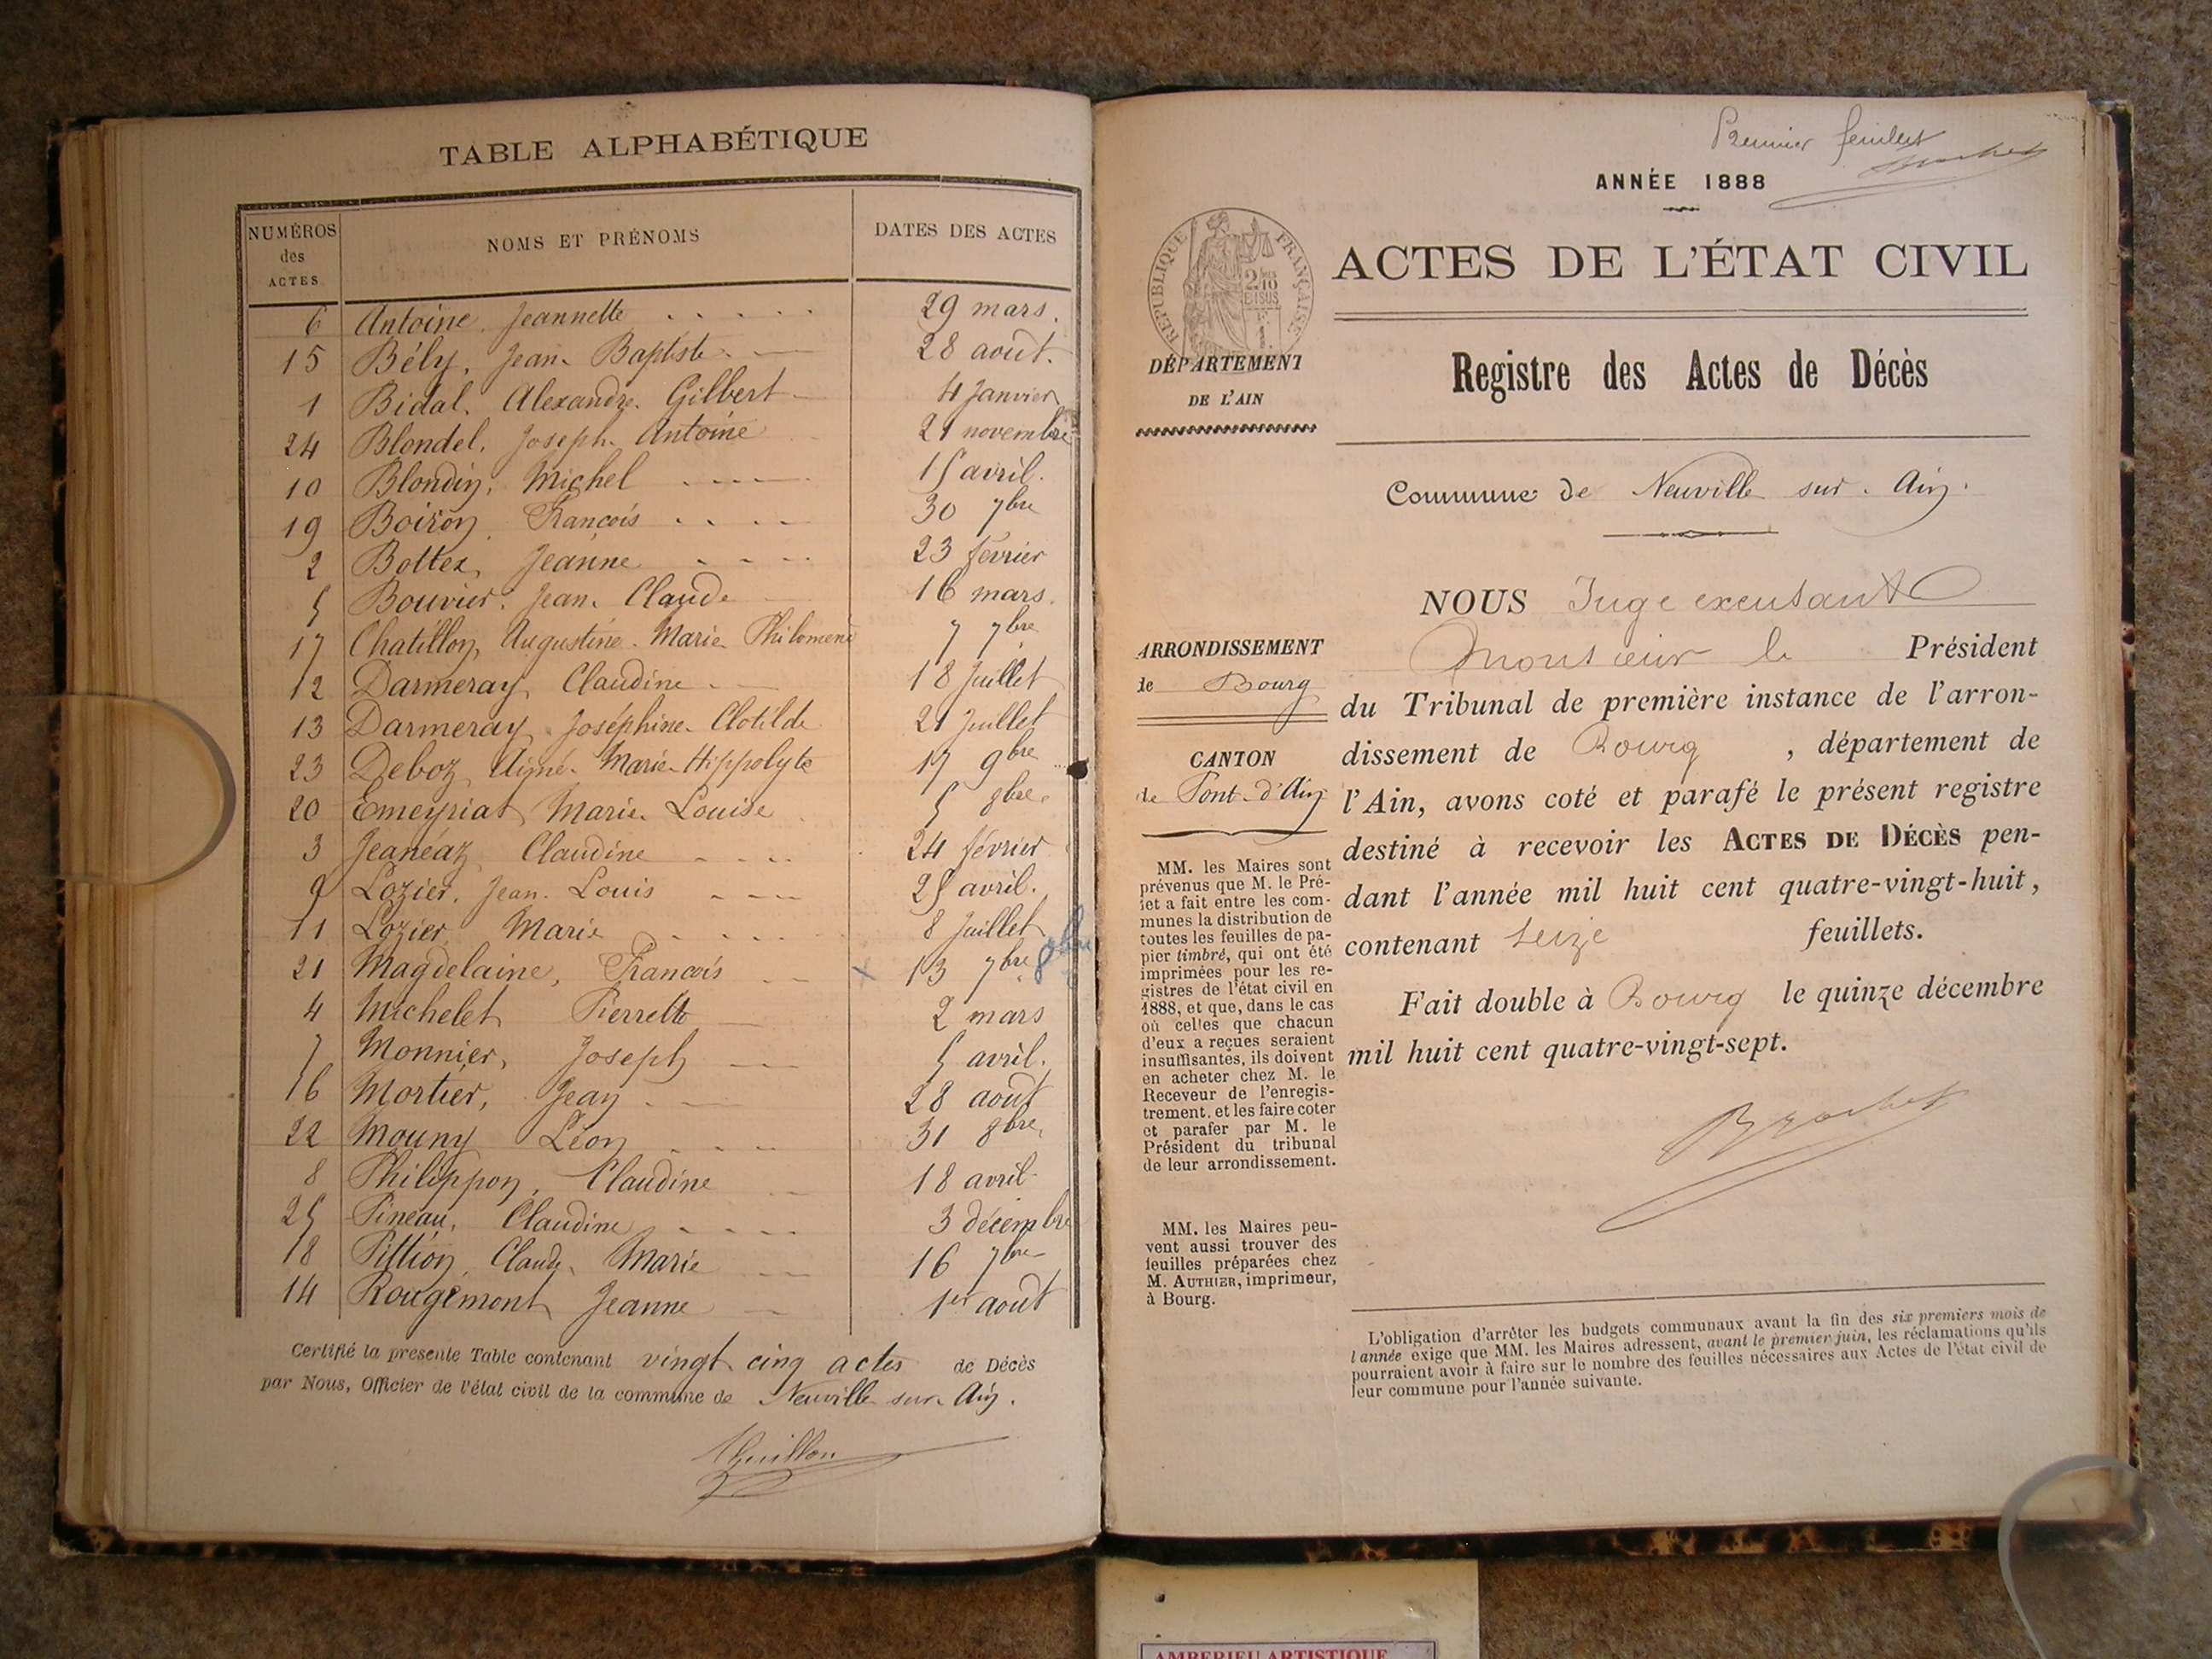 TABLE ALPHABÉTIQUE
NUMÉROS des ACTES NOMS ET PRÉNOMS DATES DES ACTES
6 Antoine Jeannette 29 mars.
15 Bély, Jean-Baptiste 28 août.
1 Bidal, Alexandre Gilbert 4 Janvier
24 Blondel, Joseph Antoine 21 novembre
10 Blondin, Michel 15 avril.
19 Boiron François 30 7bre
2 Bottex Jeanne 23 février
5 Bouvier, Jean Claude 16 mars.
17 Chatillon, Augustine Marie Philomène 7 7bre
12 Darmeray, Claudine 18 Juillet
13 Darmeray Joséphine Clotilde 21 Juillet
23 Deboz, Aimé Marie-Hippolyte 17 9bre
20 Emeyriat Marie Louise 5 8bre
3 Jeanéaz Claudine 24 février
9 Lozier, Jean Louis 25 avril.
11 Lozier Marie 8 Juillet
21 Magdelaine, François x 13 7bre 8bre
4 Michelet Pierrette 2 mars
7 Monnier, Joseph 5 avril.
16 Mortier, Jean 28 août
22 Mouny Léon 31 8bre
8 Philippon, Claudine 18 avril
25 Pineau, Claudine 3 décembre
18 Pittion Claude Marie 16 7bre
14 Rougemont Jeanne 1er août
Certifié la présente Table contenant vingt cinq actes de Décès
par Nous, Officier de l'état civil de la commune de Neuville sur Ain.
Premier feuillet
ANNÉE 1888
RÉPUBLIQUE FRANÇAISE
2/10 EN SUS
ACTES DE L'ÉTAT CIVIL
DÉPARTEMENT
DE L'AIN
Registre des Actes de Décès
Commune de Neuville sur Ain.
NOUS Juge exceusant
Monsieur le Président
du Tribunal de première instance de l'arron-
dissement de Bourg , département de
l'Ain, avons coté et parafé le présent registre
destiné à recevoir les ACTES DE DÉCÈS pen-
dant l'année mil huit cent quatre-vingt-huit,
contenant seize feuillets.
Fait double à Bourg le quinze décembre
mil huit cent quatre-vingt-sept.
Brochet
ARRONDISSEMENT
de Bourg
CANTON
de Pont-d'Ain
MM. les Maires sont
prévenus que M. le Pré-
fet a fait entre les com-
munes la distribution de
toutes les feuilles de pa-
pier timbré, qui ont été
imprimées pour les re-
gistres de l'état civil en
1888, et que, dans le cas
où celles que chacun
d'eux a reçues seraient
insuffisantes, ils doivent
en acheter chez M. le
Receveur de l'enregis-
trement, et les faire coter
et parafer par M. le
Président du tribunal
de leur arrondissement.
MM. les Maires peu-
vent aussi trouver des
feuilles préparées chez
M. AUTHIER, imprimeur,
à Bourg.
L'obligation d'arrêter les budgets communaux avant la fin des six premiers mois de
l'année exige que MM. les Maires adressent, avant le premier juin, les réclamations qu'ils
pourraient avoir à faire sur le nombre des feuilles nécessaires aux Actes de l'état civil de
leur commune pour l'année suivante.
AMBERIEU ARTISTIQUE